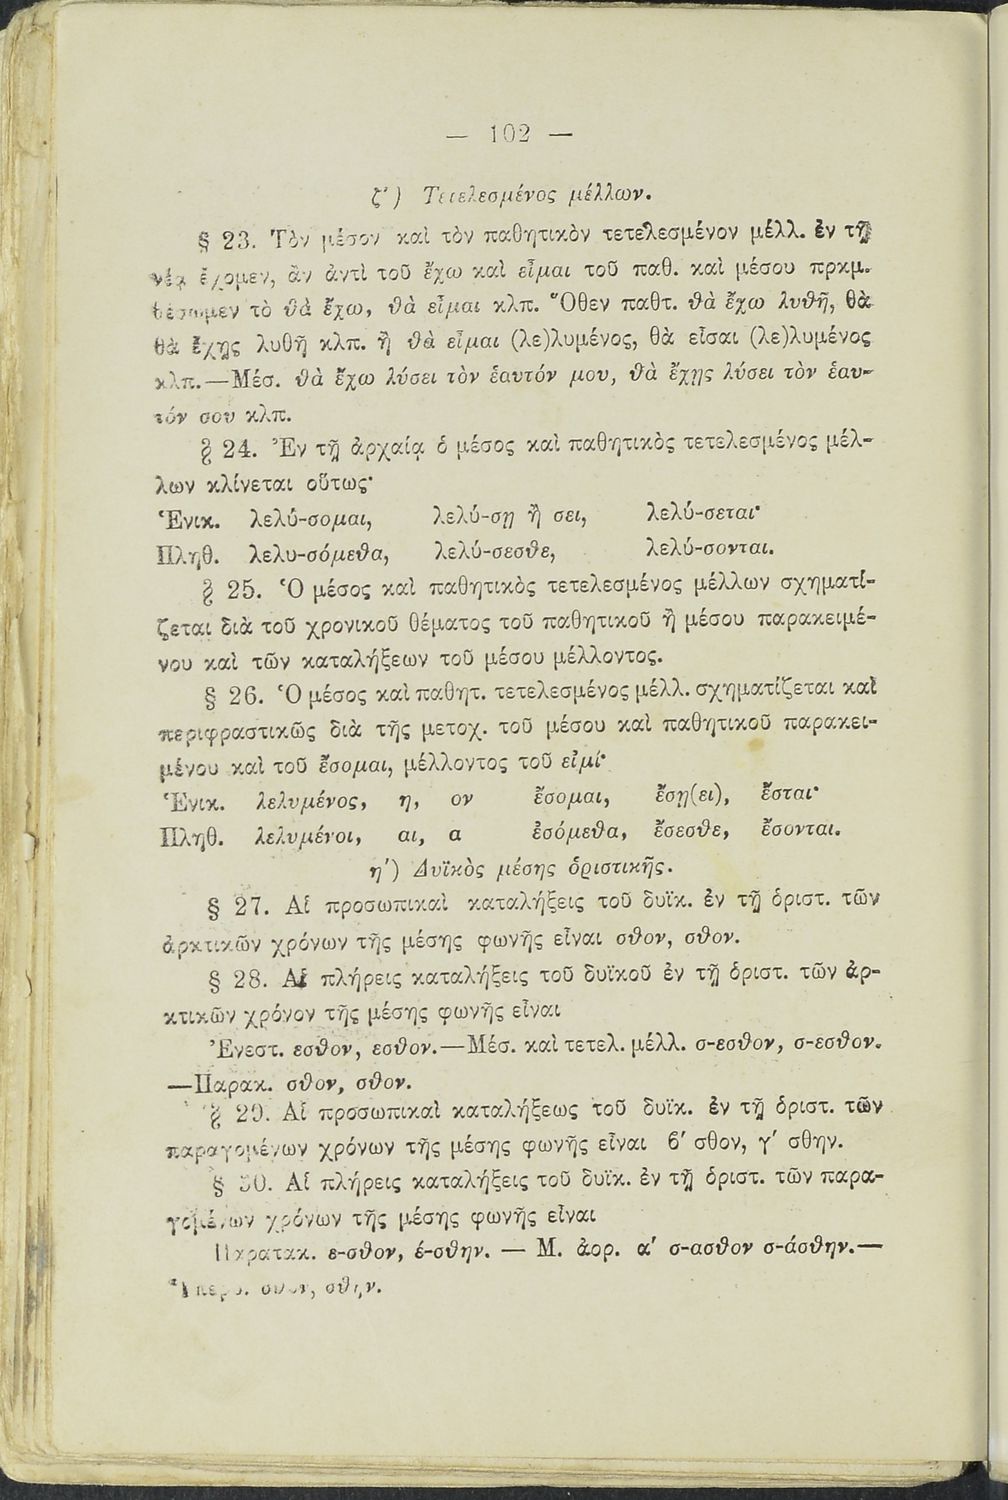 — 102 —
ζʹ) Τετελεσμένος μέλλων.
§ 23. Τὸν μέσον καὶ τὸν παθητικὸν τετελεσμένον μέλλ. ἐν τῇ
νέᾳ ἔχομεν, ἂν ἀντὶ τοῦ ἔχω καὶ εἶμαι τοῦ παθ. καὶ μέσου πρκμ.
θέσωμεν τὸ θὰ ἔχω, θὰ εἶμαι κλπ. Ὅθεν παθτ. θὰ ἔχω λυθῆ, θὰ
θὰ ἔχῃς λυθῆ κλπ. ἢ θὰ εἶμαι (λε)λυμένος, θὰ εἶσαι (λε)λυμένος
κλπ.—Μέσ. θὰ ἔχω λύσει τὸν ἑαυτόν μου, θὰ ἔχῃς λύσει τὸν ἑαυ-
τόν σου κλπ.
§ 24. Ἐν τῇ ἀρχαίᾳ ὁ μέσος καὶ παθητικὸς τετελεσμένος μέλ-
λων κλίνεται οὕτως·
Ἑνικ. λελύ-σομαι, λελύ-σῃ ἢ σει, λελύ-σεται·
Πληθ. λελυ-σόμεθα, λελύ-σεσθε, λελύ-σονται.
§ 25. Ὁ μέσος καὶ παθητικὸς τετελεσμένος μέλλων σχηματί-
ζεται διὰ τοῦ χρονικοῦ θέματος τοῦ παθητικοῦ ἢ μέσου παρακειμέ-
νου καὶ τῶν καταλήξεων τοῦ μέσου μέλλοντος.
§ 26. Ὁ μέσος καὶ παθητ. τετελεσμένος μέλλ. σχηματίζεται καὶ
περιφραστικῶς διὰ τῆς μετοχ. τοῦ μέσου καὶ παθητικοῦ παρακει-
μένου καὶ τοῦ ἔσομαι, μέλλοντος τοῦ εἰμί·
Ἑνικ. λελυμένος, η, ον ἔσομαι, ἔσῃ(ει), ἔσται·
Πληθ. λελυμένοι, αι, α ἐσόμεθα, ἔσεσθε, ἔσονται.
ηʹ) Δυϊκὸς μέσης ὁριστικῆς.
§ 27. Αἱ προσωπικαὶ καταλήξεις τοῦ δυϊκ. ἐν τῇ ὁριστ. τῶν
ἀρκτικῶν χρόνων τῆς μέσης φωνῆς εἶναι σθον, σθον.
§ 28. Αἱ πλήρεις καταλήξεις τοῦ δυϊκοῦ ἐν τῇ ὁριστ. τῶν ἀρ-
κτικῶν χρόνον τῆς μέσης φωνῆς εἶναι
Ἐνεστ. εσθον, εσθον.—Μέσ. καὶ τετελ. μέλλ. σ-εσθον, σ-εσθον.
—Παρακ. σθον, σθον.
§ 29. Αἱ προσωπικαὶ καταλήξεως τοῦ δυϊκ. ἐν τῇ ὁριστ. τῶν
παραγομένων χρόνων τῆς μέσης φωνῆς εἶναι ϐʹ σθον, γʹ σθην.
§ 30. Αἱ πλήρεις καταλήξεις τοῦ δυϊκ. ἐν τῇ ὁριστ. τῶν παρα-
γομένων χρόνων τῆς μέσης φωνῆς εἶναι
Παρατακ. ε-σθον, έ-σθην. — Μ. ἀορ. αʹ σ-ασθον σ-άσθην.—
Ὑπερσ. σθον, σθην.